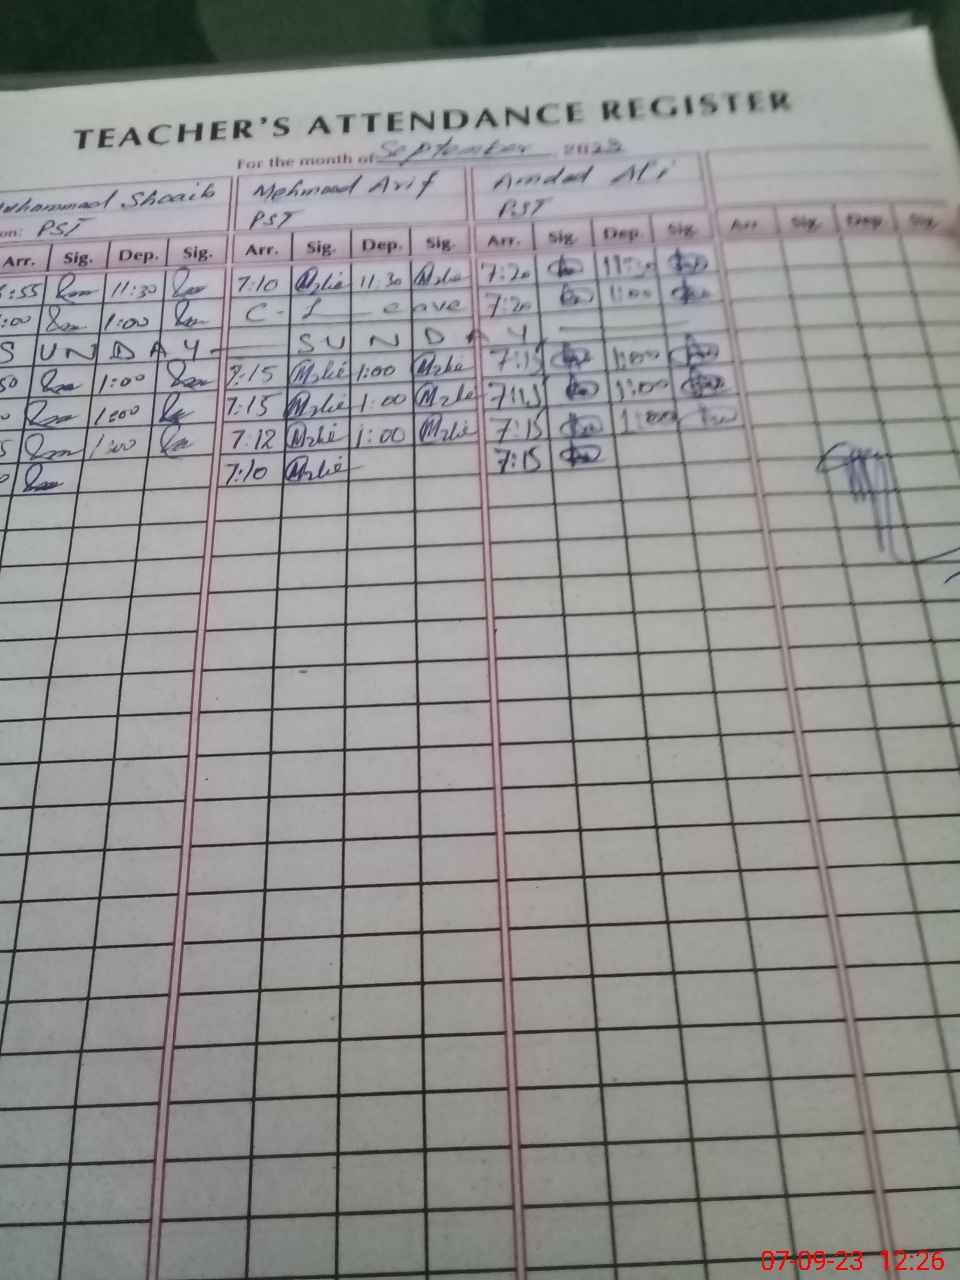 TEACHER'S ATTENDANCE REGISTER
For the month of September 2023
Shoaib Mehmood Arif Amdad Ali
on: PST PST PST
Arr. Sig. Dep. Sig. Arr. Sig. Dep. Sig. Arr. Sig. Dep. Sig. Arr. Sig. Dep. Sig.
:55 11:30 7:10 11:30 7:20 11:30
:00 1:00 C-Leave 7:20 1:00
SUNDAY SUNDAY
50 1:00 7:15 1:00 7:15 1:00
1:00 7:15 1:00 7:15 1:00
5 1:00 7:12 1:00 7:15 1:00
7:10 7:15
07-09-23 12:26